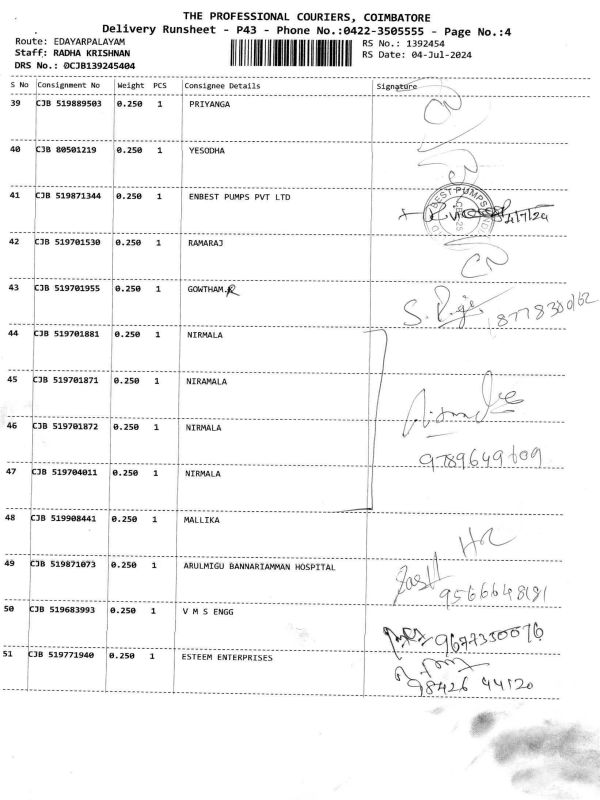 THE PROFESSIONAL COURIERS, COIMBATORE
Delivery Runsheet - P43 - Phone No.:0422-3505555 - Page No.:4
Route: EDAYARPALAYAM RS No.: 1392454
Staff: RADHA KRISHNAN RS Date: 04-Jul-2024
DRS No.: 0CJB139245404
S No Consignment No Weight PCS Consignee Details Signature
39 CJB 519889503 0.250 1 PRIYANGA
40 CJB 80501219 0.250 1 YESODHA
41 CJB 519871344 0.250 1 ENBEST PUMPS PVT LTD
42 CJB 519701530 0.250 1 RAMARAJ
43 CJB 519701955 0.250 1 GOWTHAM.R
44 CJB 519701881 0.250 1 NIRMALA
45 CJB 519701871 0.250 1 NIRAMALA
46 CJB 519701872 0.250 1 NIRMALA
9789649609
47 CJB 519704011 0.250 1 NIRMALA
48 CJB 519908441 0.250 1 MALLIKA
49 CJB 519871073 0.250 1 ARULMIGU BANNARIAMMAN HOSPITAL
9566648191
50 CJB 519683993 0.250 1 V M S ENGG 9677330076
51 CJB 519771940 0.250 1 ESTEEM ENTERPRISES
98426 44120